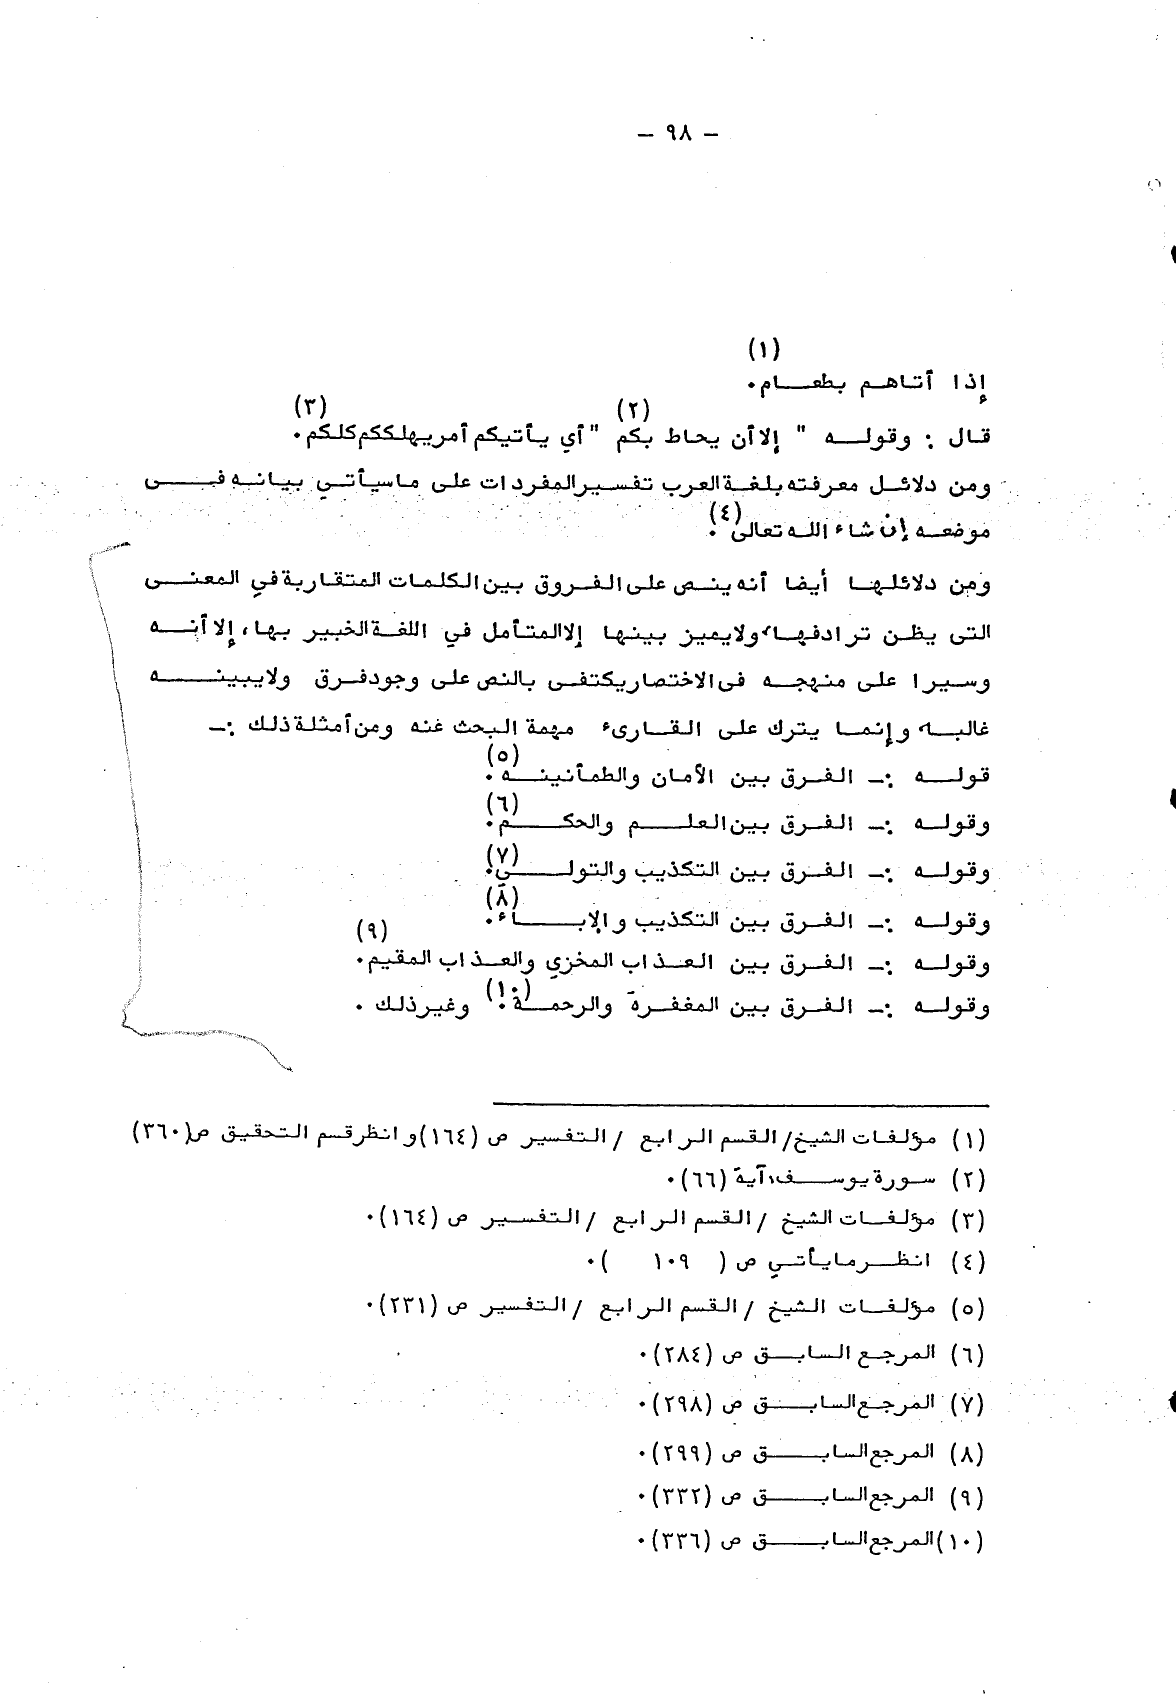 - ٩٨ -
إذا أتاهم بطعام. (١)
قال : وقوله " إلا أن يحاط بكم (٢) " أي يأتيكم أمر يهلككم كلكم. (٣)
ومن دلائل معرفته بلغة العرب تفسير المفردات على ما سيأتي بيانه في
موضعه إن شاء الله تعالى (٤).
ومن دلائلها أيضا أنه ينص على الفروق بين الكلمات المتقاربة في المعنى
التي يظن ترادفها، ولا يميز بينها إلا المتأمل في اللغة الخبير بها، إلا أنه
وسيرا على منهجه في الاختصار يكتفي بالنص على وجود فرق ولا يبينه
غالبا وإنما يترك على القارىء مهمة البحث عنه ومن أمثلة ذلك :ـ
قوله :ـ الفرق بين الأمان والطمأنينه. (٥)
وقوله :ـ الفرق بين العلم والحكم. (٦)
وقوله :ـ الفرق بين التكذيب والتولى. (٧)
وقوله :ـ الفرق بين التكذيب والإباء. (٨)
وقوله :ـ الفرق بين العذاب المخزي والعذاب المقيم. (٩)
وقوله :ـ الفرق بين المغفرة والرحمة. (١٠) وغير ذلك .
(١) مؤلفات الشيخ/ القسم الرابع / التفسير ص (١٦٤) وانظر قسم التحقيق ص(٣٦٠)
(٢) سورة يوسف، آية (٦٦).
(٣) مؤلفات الشيخ / القسم الرابع / التفسير ص (١٦٤).
(٤) انظر ما يأتي ص ( ١٠٩ ).
(٥) مؤلفات الشيخ / القسم الرابع / التفسير ص (٢٣١).
(٦) المرجع السابق ص (٢٨٤).
(٧) المرجع السابق ص (٢٩٨).
(٨) المرجع السابق ص (٢٩٩).
(٩) المرجع السابق ص (٣٣٢).
(١٠) المرجع السابق ص (٣٣٦).